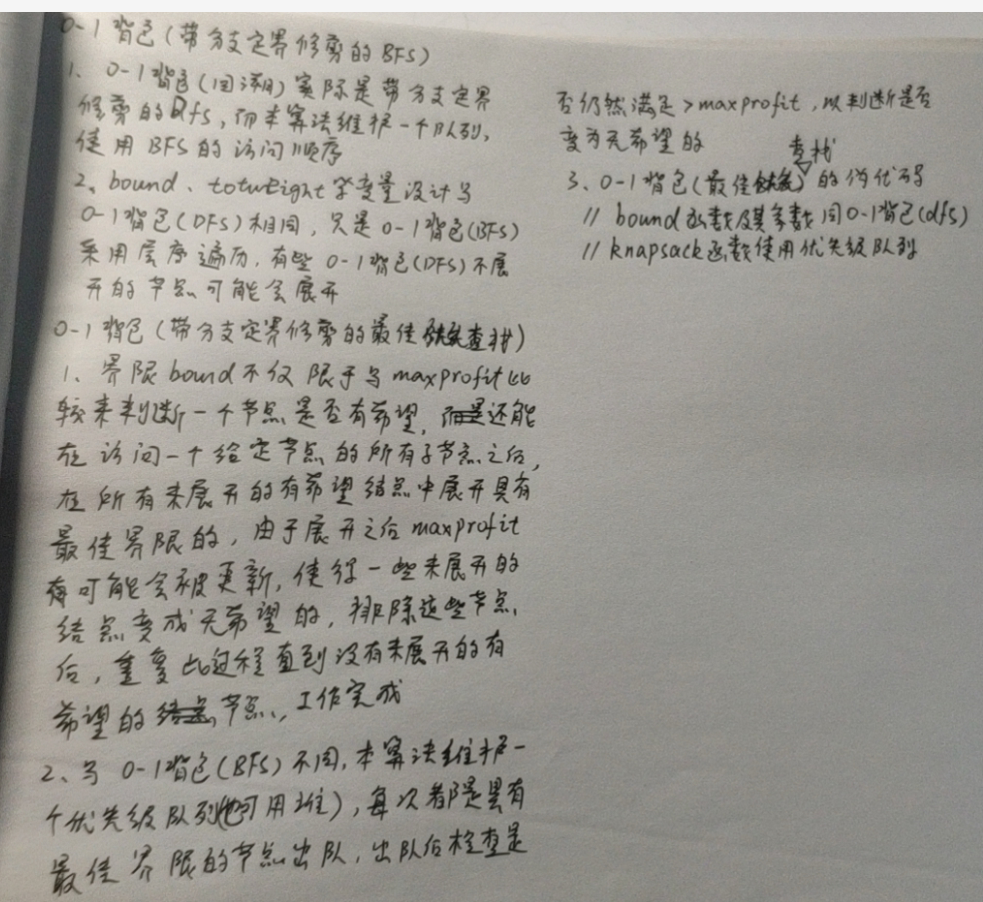 0-1背包(带分支定界修剪的BFS)
1、0-1背包(回溯)实际是带分支定界
修剪的Dfs,而本算法维护一个队列,
使用BFS的访问顺序
2、bound、totweight等变量设计与
0-1背包(DFS)相同,只是0-1背包(BFS)
采用层序遍历,有些0-1背包(DFS)不展
开的节点可能会展开
0-1背包(带分支定界修剪的最佳查找)
1、界限bound不仅限于与maxprofit比
较来判断一个节点是否有希望,还能
在访问一个给定节点的所有子节点之后,
在所有未展开的有希望结点中展开具有
最佳界限的,由于展开之后maxprofit
有可能会被更新,使得一些未展开的
结点变成无希望的,排除这些节点
后,重复此过程直到没有未展开的有
希望的节点,工作完成
2、与0-1背包(BFS)不同,本算法维护一
个优先级队列(也可用堆),每次都是具有
最佳界限的节点出队,出队后检查是
否仍然满足>maxprofit,以判断是否
变为无希望的
3、0-1背包(最佳查找)的伪代码
// bound函数及其参数同0-1背包(dfs)
// knapsack函数使用优先级队列